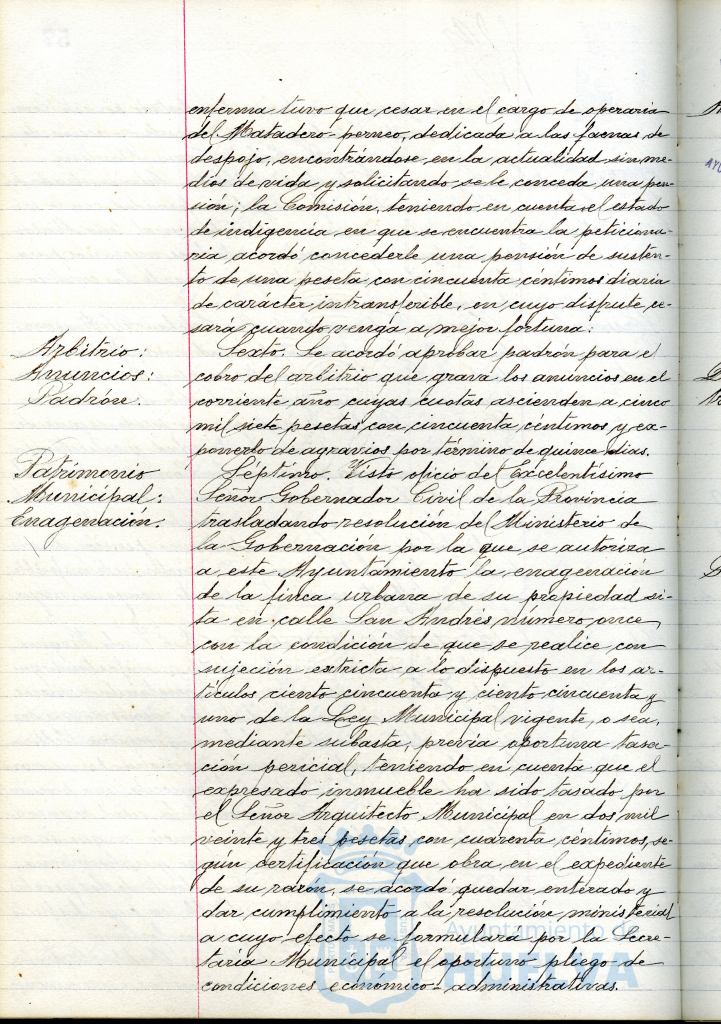 enferma tuvo que cesar en el cargo de operaria
del Matadero perneo, dedicada a las faenas de
despojo, encontrándose en la actualidad sin me-
dios de vida y solicitando se le conceda una pen-
sión; la Comisión, teniendo en cuenta el estado
de indigencia en que se encuentra la peticiona-
ria acordó concederle una pensión de susten-
to de una peseta con cincuenta céntimos diaria
de carácter intransferible, en cuyo disfrute ce-
sará cuando venga a mejor fortuna.
Arbitrio:
Anuncios:
Padrón.
Sexto. Se acordó aprobar padrón para el
cobro del arbitrio que grava los anuncios en el
corriente año cuyas cuotas ascienden a cinco
mil siete pesetas con cincuenta céntimos y ex-
ponerlo de agravios por término de quince días.
Patrimonio
Municipal:
Enagenación.
Séptimo. Visto oficio del Excelentísimo
Señor Gobernador Civil de la Provincia
trasladando resolución del Ministerio de
la Gobernación por la que se autoriza
a este Ayuntamiento la enagenación
de la finca urbana de su propiedad si-
ta en calle San Andrés número once,
con la condición de que se realice con
sujeción extricta a lo dispuesto en los ar-
tículos ciento cincuenta y ciento cincuenta y
uno de la Ley Municipal vigente, o sea,
mediante subasta, previa oportuna tasa-
ción pericial, teniendo en cuenta que el
expresado inmueble ha sido tasado por
el Señor Arquitecto Municipal en dos mil
veinte y tres pesetas con cuarenta céntimos, se-
gún certificación que obra en el expediente
de su razón, se acordó quedar enterado y
dar cumplimiento a la resolución ministerial
a cuyo efecto se formulará por la Secre-
taría Municipal el oportuno pliego de
condiciones económico-administrativas.
Ayuntamiento de
HUELVA